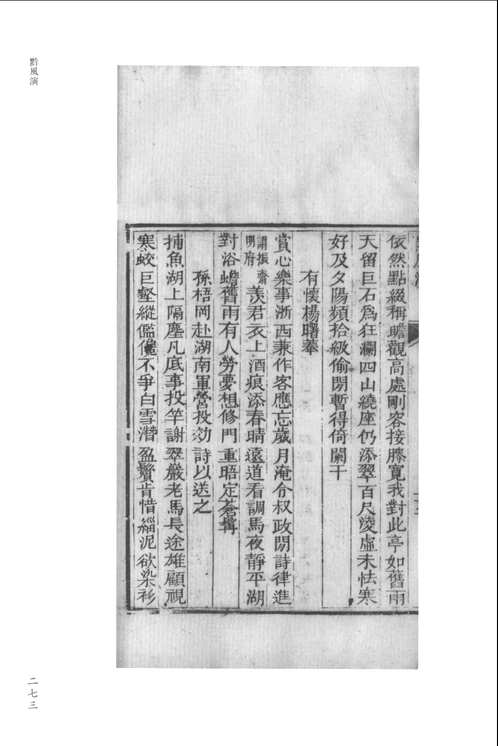 黔風演
依然點綴稱瞻觀高處剛容接膝寬我對此亭如舊雨
天留巨石爲狂瀾四山繞座仍添翠百尺凌虛未怯寒
好及夕陽頻拾級偷閒暫得倚闌干
有懷楊曙菴
賞心樂事浙西兼作客應忘歲月淹介叔政閒詩律進
謂振齋明府羨君衣上酒痕添春晴遠道看調馬夜靜平湖
對浴蟾舊雨有人勞夢想修門重晤定蒼髯
孫梧岡赴湖南軍營投効詩以送之
捕魚湖上隔塵凡底事投竿謝翠巖老馬長途雄顧視
寒蛟巨壑縱儳不爭白雪潛盈鬢肯惜緇泥欲染衫
二七三